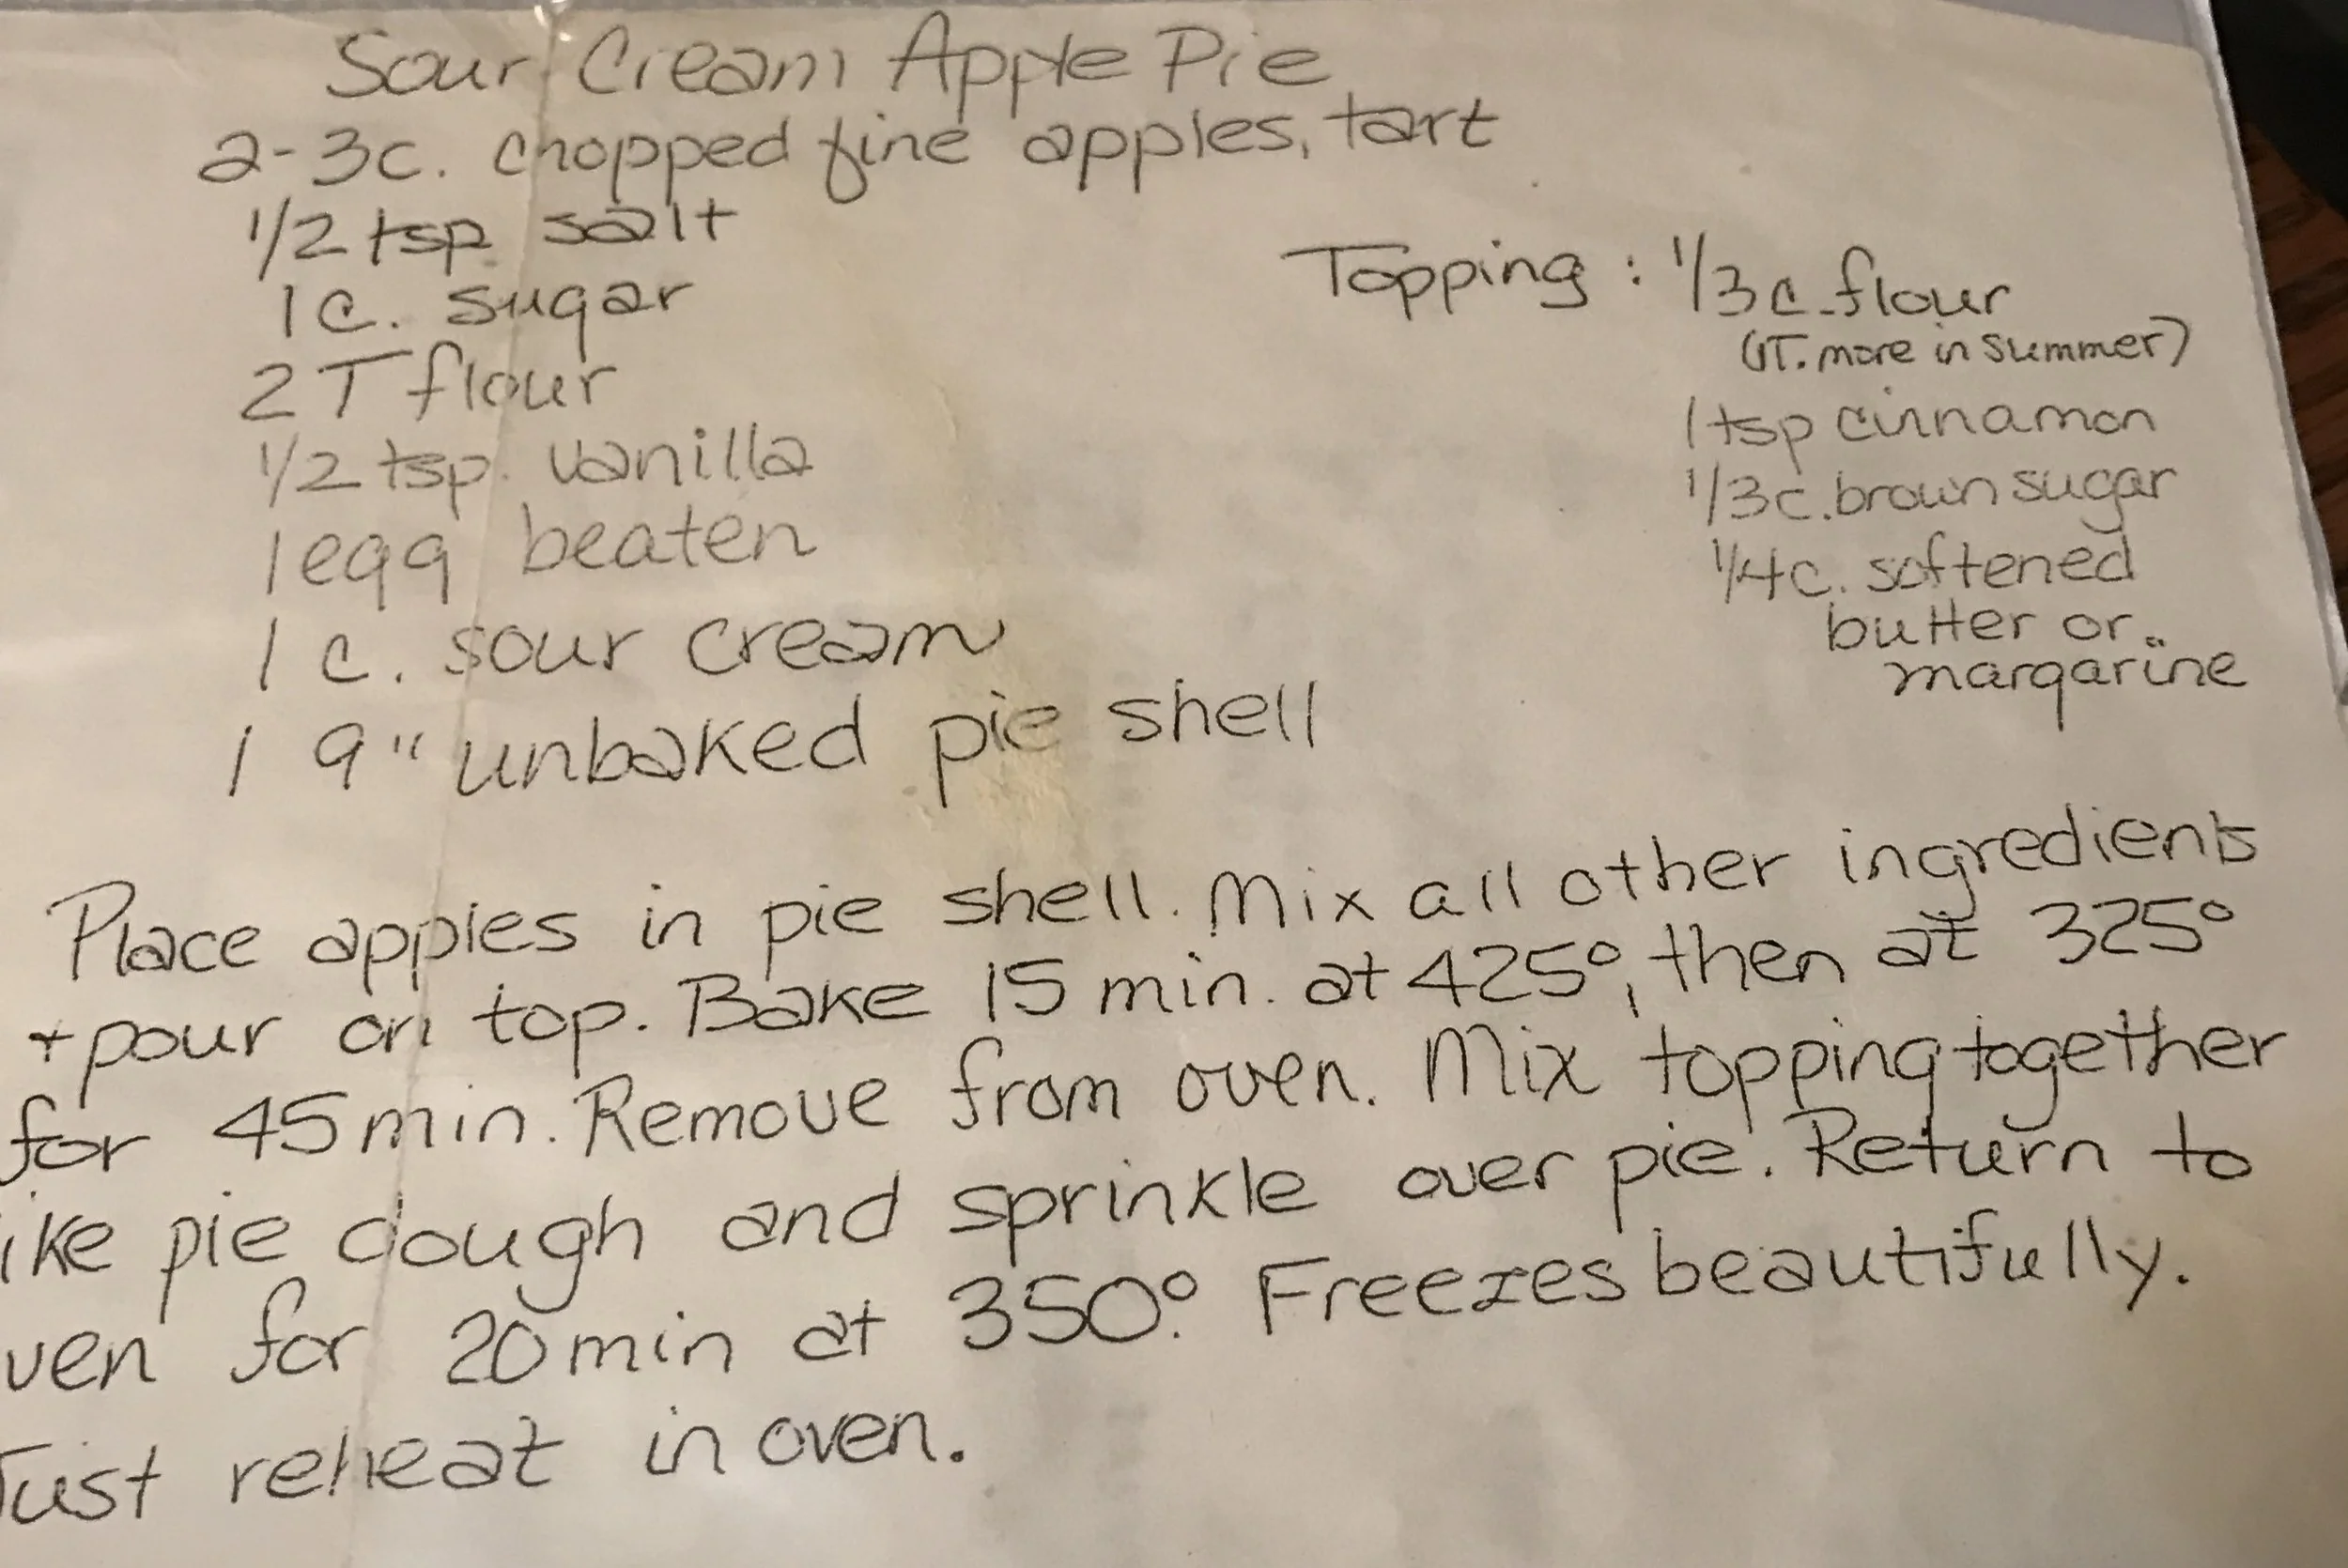 Sour Cream Apple Pie
2-3c. chopped fine apples, tart
1/2 tsp. salt
1 c. sugar
2 T flour
1/2 tsp. vanilla
1 egg beaten
1 c. sour cream
1 9" unbaked pie shell
Topping: 1/3 c. flour
(1T. more in summer)
1 tsp cinnamon
1/3 c. brown sugar
1/4 c. softened
butter or
margarine
Place apples in pie shell. Mix all other ingredients
+ pour on top. Bake 15 min. at 425°, then at 325°
for 45 min. Remove from oven. Mix topping together
ike pie dough and sprinkle over pie. Return to
ven for 20 min at 350°. Freezes beautifully.
Just reheat in oven.